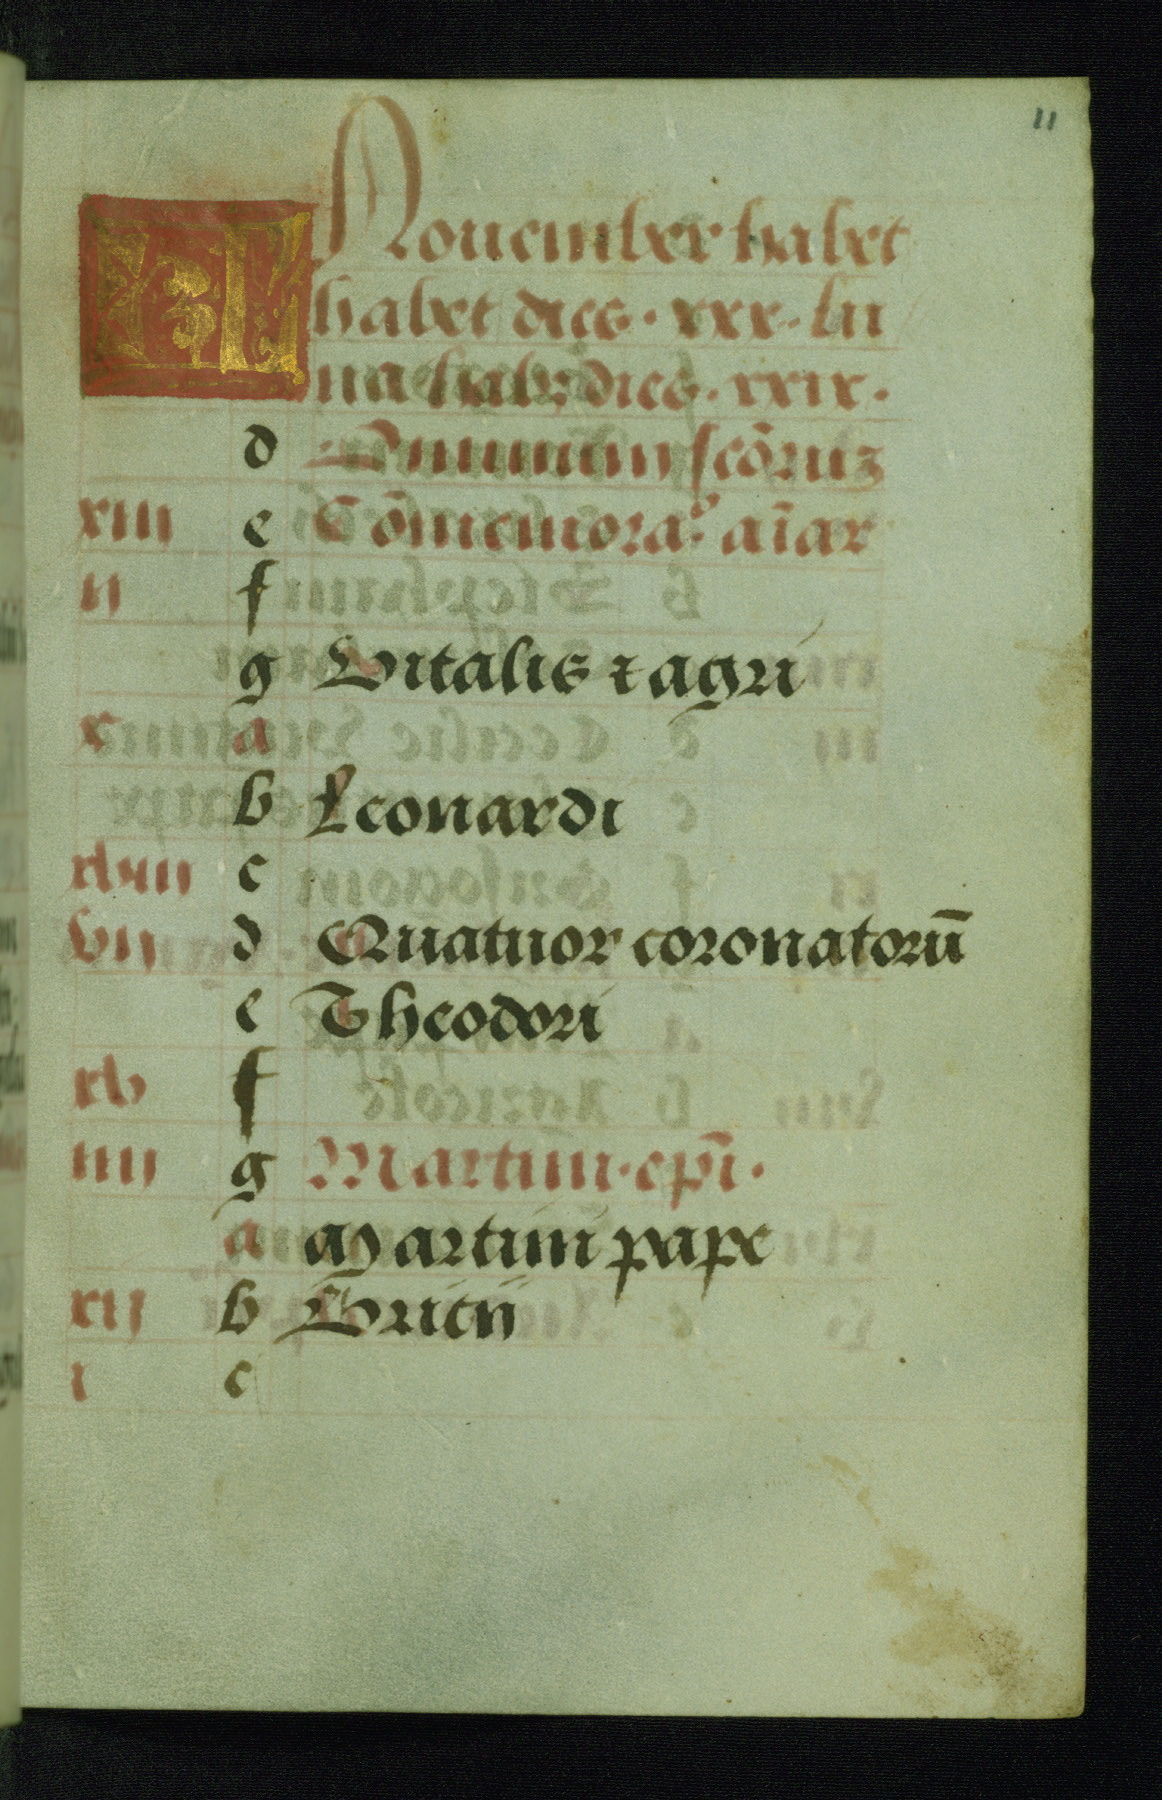 11
KL Nouember habet
habet dies · xxx · lu
na habz dies · xxix ·
d Omnium scōruz
xiii e Cōmemora° aīar
ii f
g Vitalis ⁊ agri
x a
b Leonardi
xviii c
vii d Quatuor coronatorū
e Theodori
xv f
iiii g Martini · epī ·
a Martini pape
xii b Britij
i c